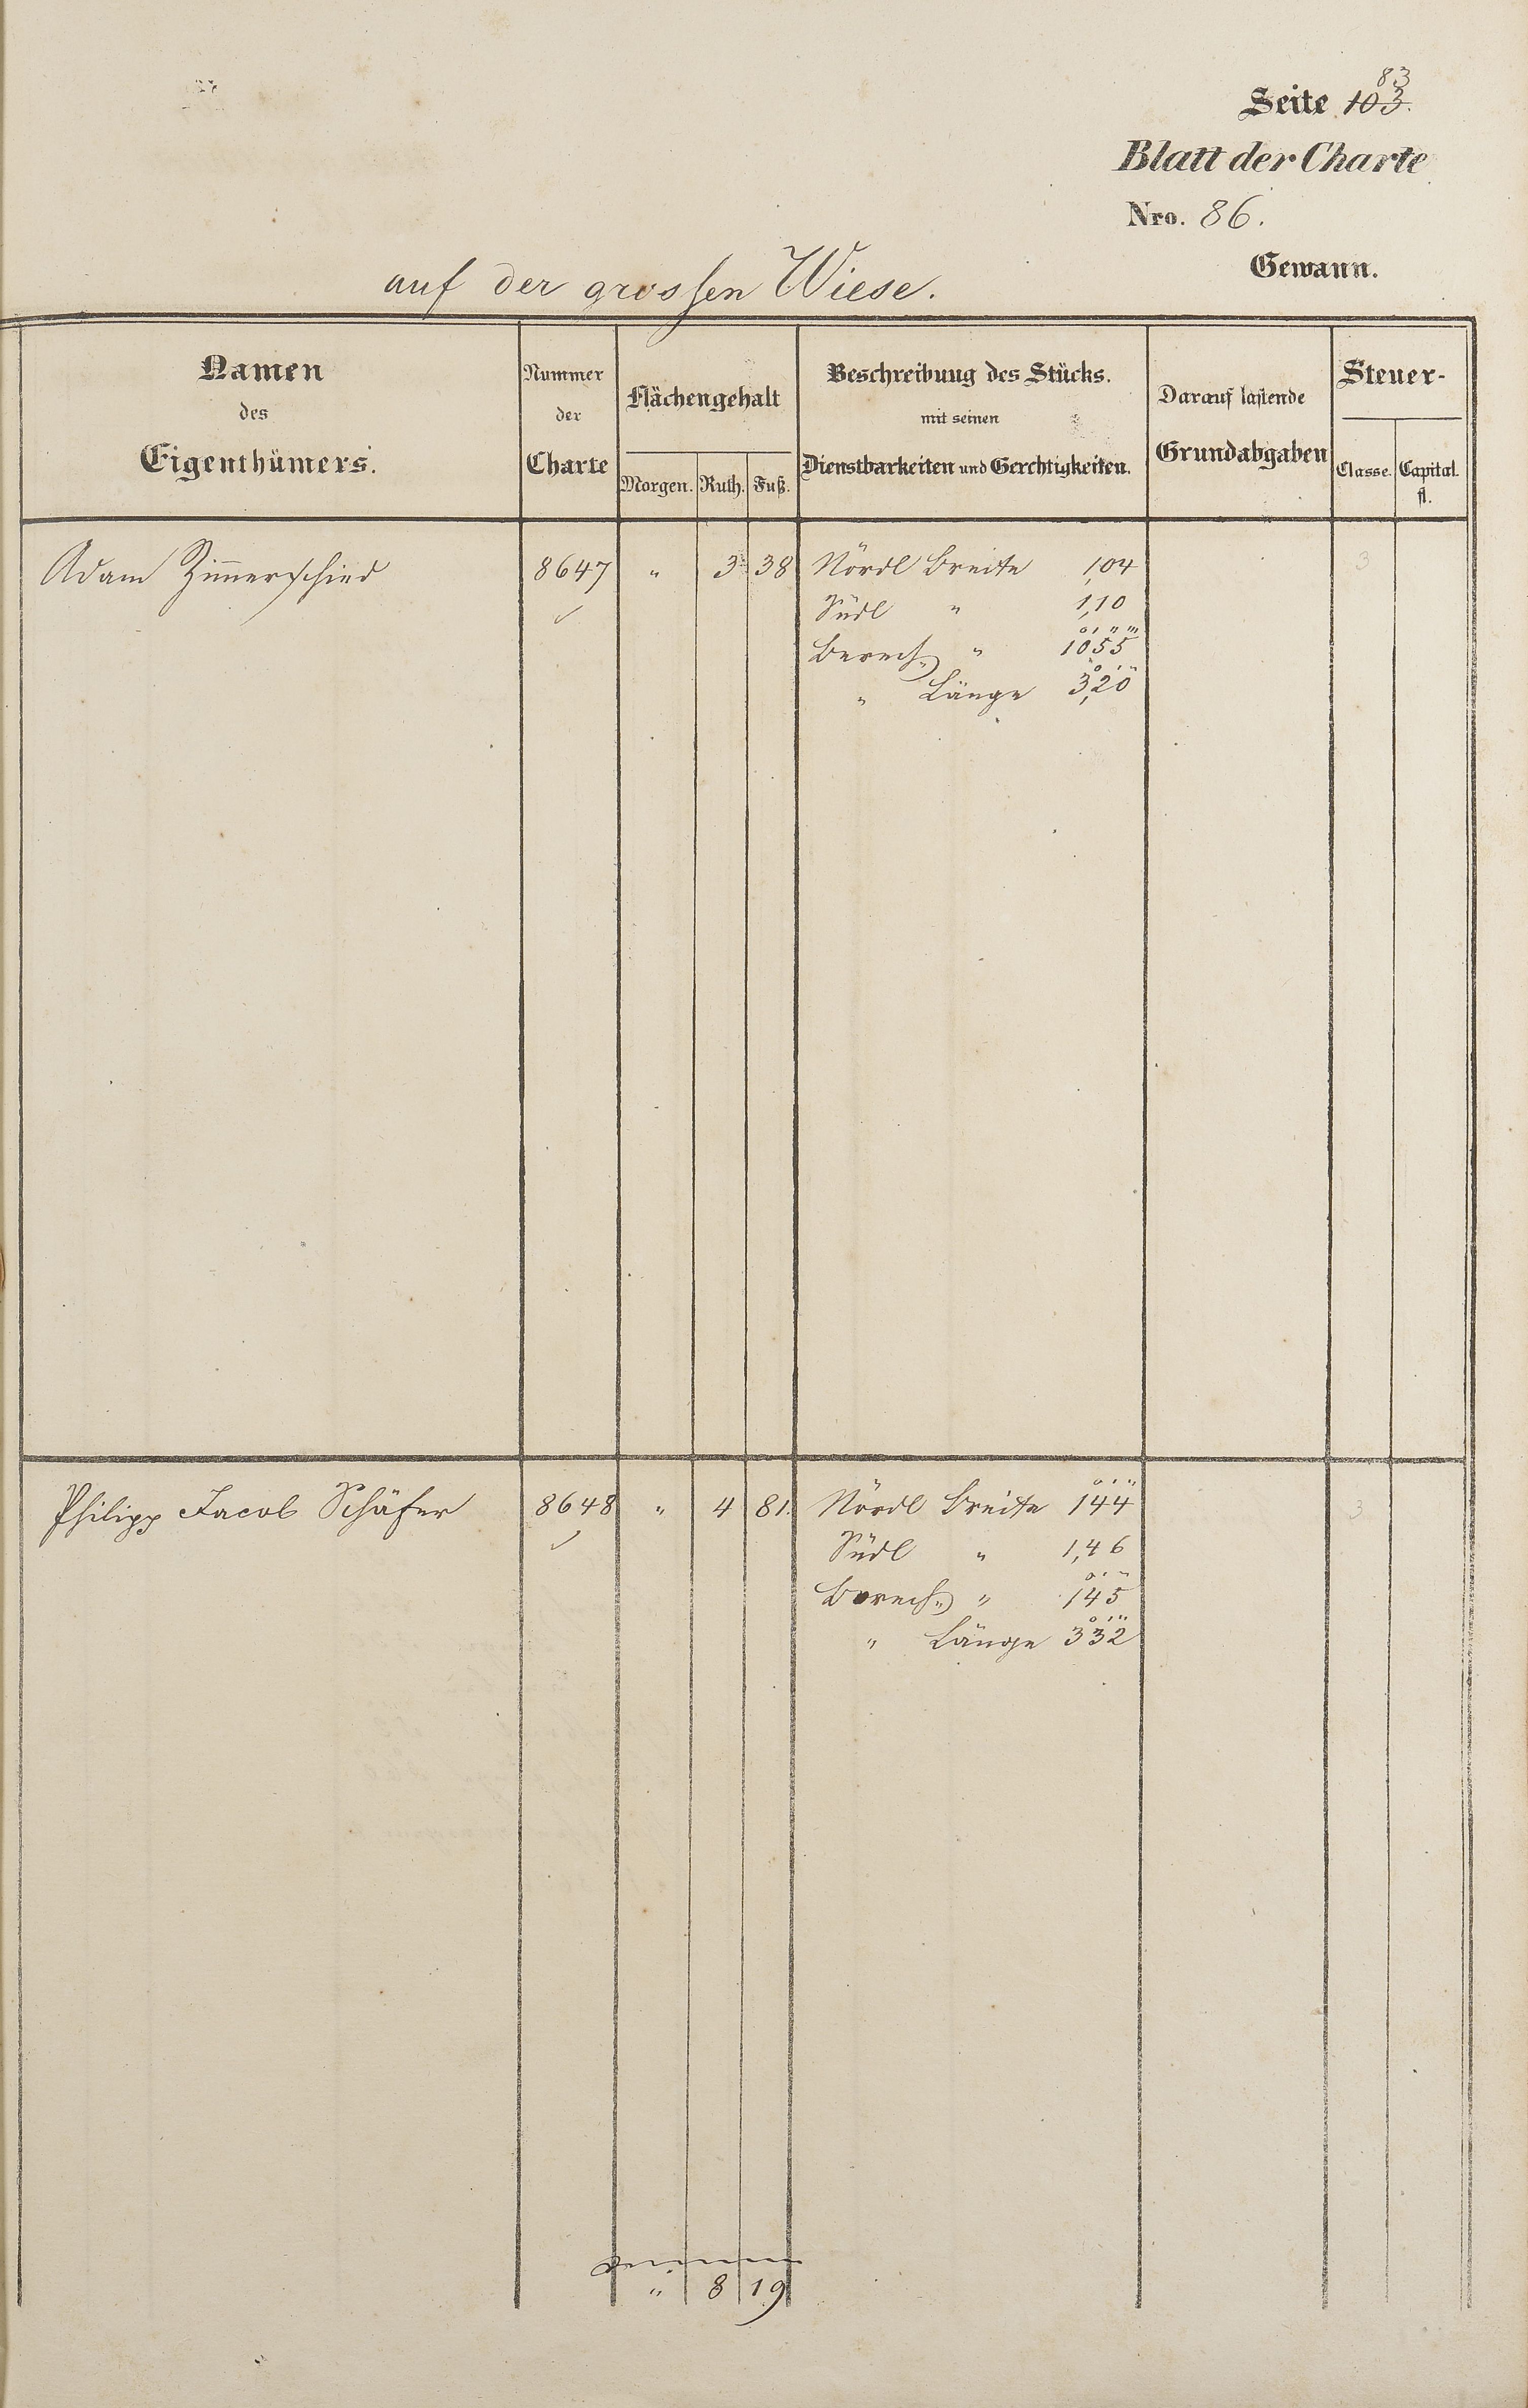 83
Seite 103.
Blatt der Charte
Nro. 86.
Gewann.
auf der grossen Wiese.
Namen
des
Eigenthümers.
Nummer
der
Charte
Flächengehalt
Morgen. Ruth. Fuß.
Beschreibung des Stücks.
mit seinen
Dienstbarkeiten und Gerechtigkeiten.
Darauf lastende
Grundabgaben
Steuer-
Classe. Capital.
fl.
Adam Zim̅erschied 8647 " 3 38 Nördl Breite 1,04 3
Südl " 1,10
Berech. " 1055
" Länge 3,20
Philipp Jacob Schäfer 8648 " 4 81. Nördl Breite 144 3
Südl " 1,46
Berech. " 145
" Länge 332
" 8 19